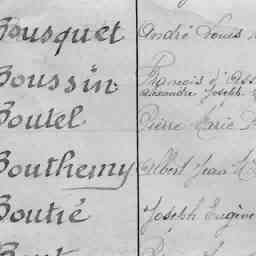 Bousquet André Louis
Boussin François d'Ass
Alexandre Joseph
Boutel Pierre Marie
Bouthemy Albert Jean M
Boutié Joseph Eugène